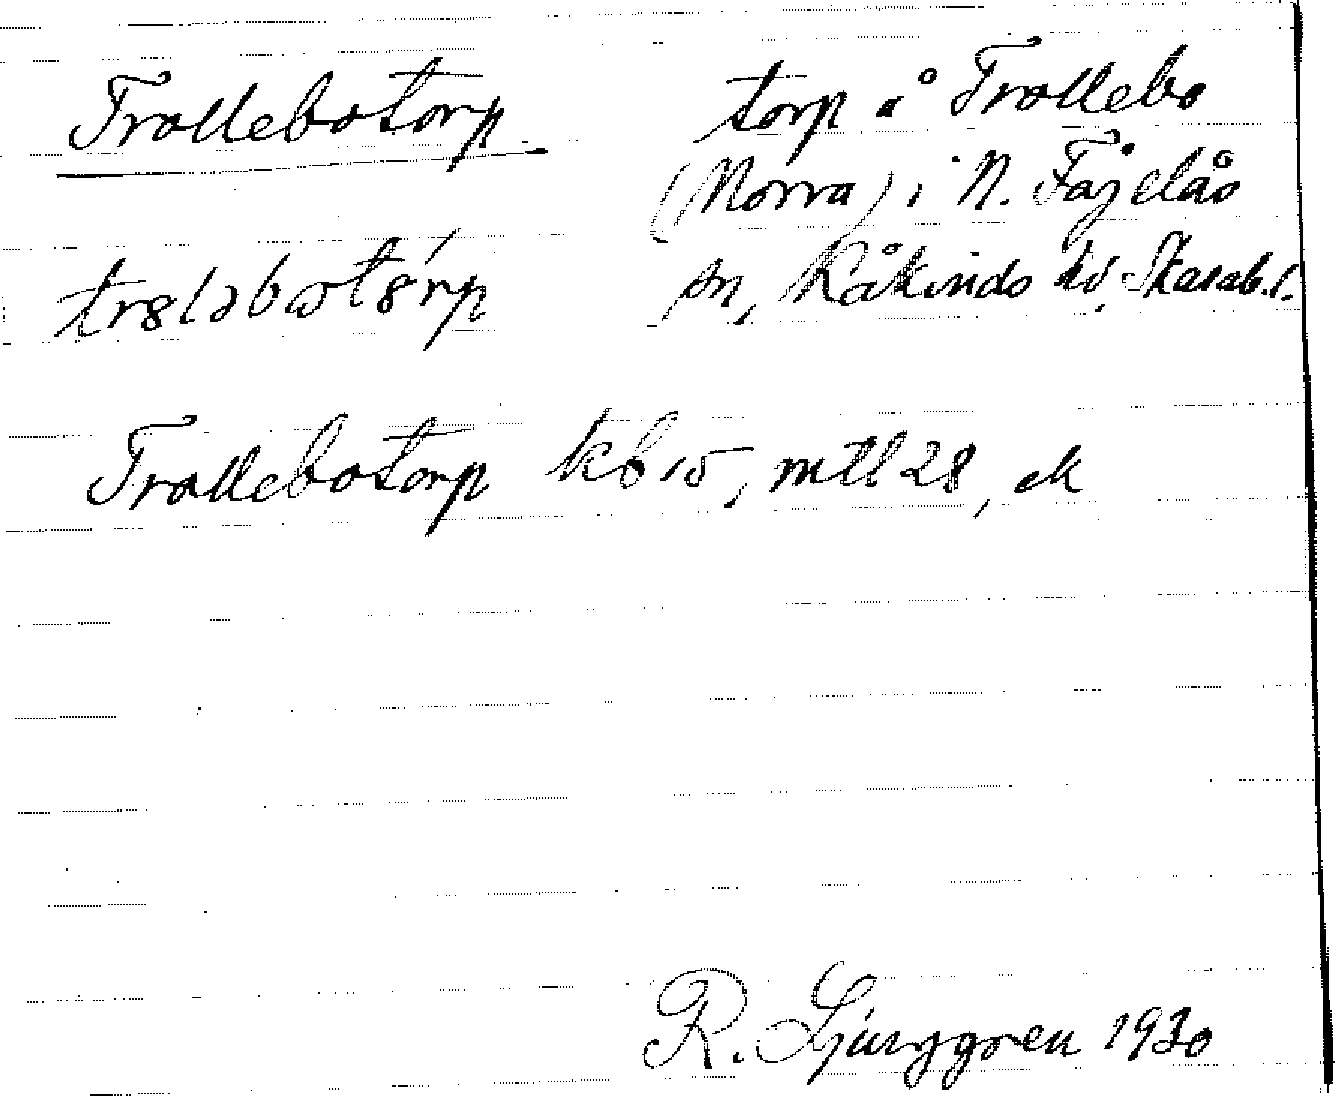 Trollebotorp
torp å Trollebo
(Norra) i N. Fågelås
sn, Kåkinds hd, Skarab.l.
Trollebotorp kb 15, mtl 28, ek
R. Ljunggren 1930